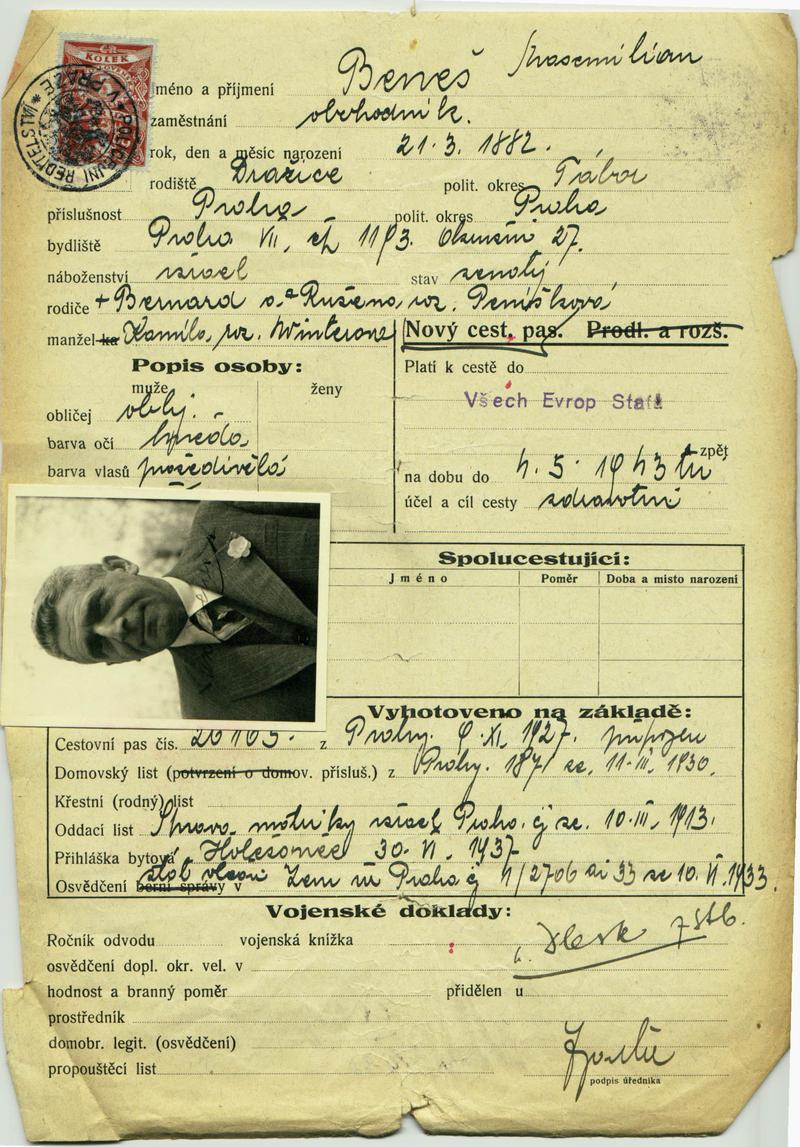 KOLEK
POLICEJNÍ ŘEDITELSTVÍ * V PRAZE *
Jméno a příjmení Beneš
zaměstnání obchodník.
rok, den a měsíc narození 21. 3. 1882.
rodiště Dražice polit. okres Tábor
příslušnost Praha polit. okres Praha
bydliště Praha VII, čp 1193. 27.
náboženství israel stav ženatý
rodiče + Bernard a Růžena, roz. Peníšková
manžel ka Kamila, roz. Winterová
Nový cest. pas. Prodl. a rozš.
Popis osoby:
Platí k cestě do
muže ženy
Všech Evrop Států
obličej oblý.
barva očí hnědá
barva vlasů prošedivělá
zpět
na dobu do 4. 5. 1943
účel a cíl cesty zdravotní
Spolucestující:
Jméno Poměr Doba a místo narození
Vyhotoveno na základě:
Cestovní pas čís. 26165. z Prahy. XI. 1927.
Domovský list (potvrzení o domov. přísluš.) z Prahy. ze. 11. III. 1930.
Křestní (rodný) list
Oddací list Správa matriky israel Praha. čj ze. 10. III. 1913.
Přihláška bytová Holešovice 30. VI. 1937
Osvědčení berní správy v Zem úř Praha čj 4/2706 ai 33 ze 10. VI. 1933.
Vojenské doklady:
Ročník odvodu vojenská knížka
osvědčení dopl. okr. vel. v
hodnost a branný poměr přidělen u
prostředník
domobr. legit. (osvědčení)
propouštěcí list
podpis úředníka